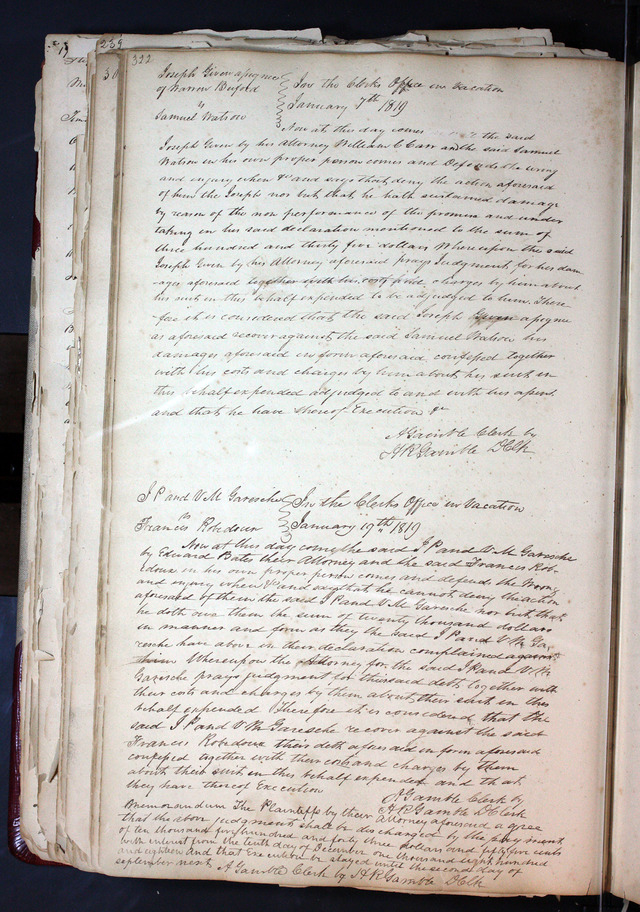 239
322
Joseph Given assignee
of Warren Buford
"
Samuel Watson
In the Clerks Office in Vacation
January 7th 1819
Now at this day comes the said
Joseph Given by his Attorney William C Carr and the said Samuel
Watson in his own proper person comes and Defends the wrong
and injury when &c and says that deny the action aforesaid
of him the Joseph nor but that he hath sustained damage
by reason of the non performance of the promise and under
taking in his said declaration mentioned to the sum of
three hundred and thirty five dollars Whereupon the said
Joseph Given by his Attorney aforesaid prays Judgment for his dam
ages aforesaid together with his costs and charges by him about
his suit in this behalf expended to be adjudged to him. There-
fore it is considered that the said Joseph Given assignee
as aforesaid recover against the said Samuel Watson his
damages aforesaid in form aforesaid confessed together
with his costs and charges by him about his suit in
this behalf expended adjudged to and with his assent
and that he have thereof Execution &c
A Gamble Clerk by
H R Gamble D Clk
J P and V M Garesche
vs
Francis Robidoux
In the Clerks Office in Vacation
January 19th 1819
Now at this day come the said J P and V. M. Garesche
by Edward Bates their Attorney and the said Francis Rob-
idoux in his own proper person comes and defend the wrong
and injury when &c and says that he cannot deny the action
aforesaid of them the said J P and V M Garesche nor but that
he doth owe them the sum of twenty thousand dollars
in manner and form as they the said J P and V M Ga-
resche have above in their declaration complained against
him Whereupon the Attorney for the said J P and V. M.
Garesche prays judgment for their said debt together with
their costs and charges by them about their suit in this
behalf expended Therefore it is considered that the
said J P and V M Garesche recover against the said
Francis Robidoux their debt aforesaid in form aforesaid
confessed together with their costs and charges by them
about their suit in this behalf expended and that
they have thereof Execution
A Gamble Clerk by
H R Gamble D Clerk
Memorandum The Plaintiffs by their Attorney aforesaid agree
that the above judgment shall be discharged by the payment
of ten thousand five hundred and forty three dollars and fifty five cents
with interest from the tenth day of December one thousand eight hundred
and eighteen and that Execution be stayed until the second day of
september next A Gamble Clerk by H R Gamble D Clk